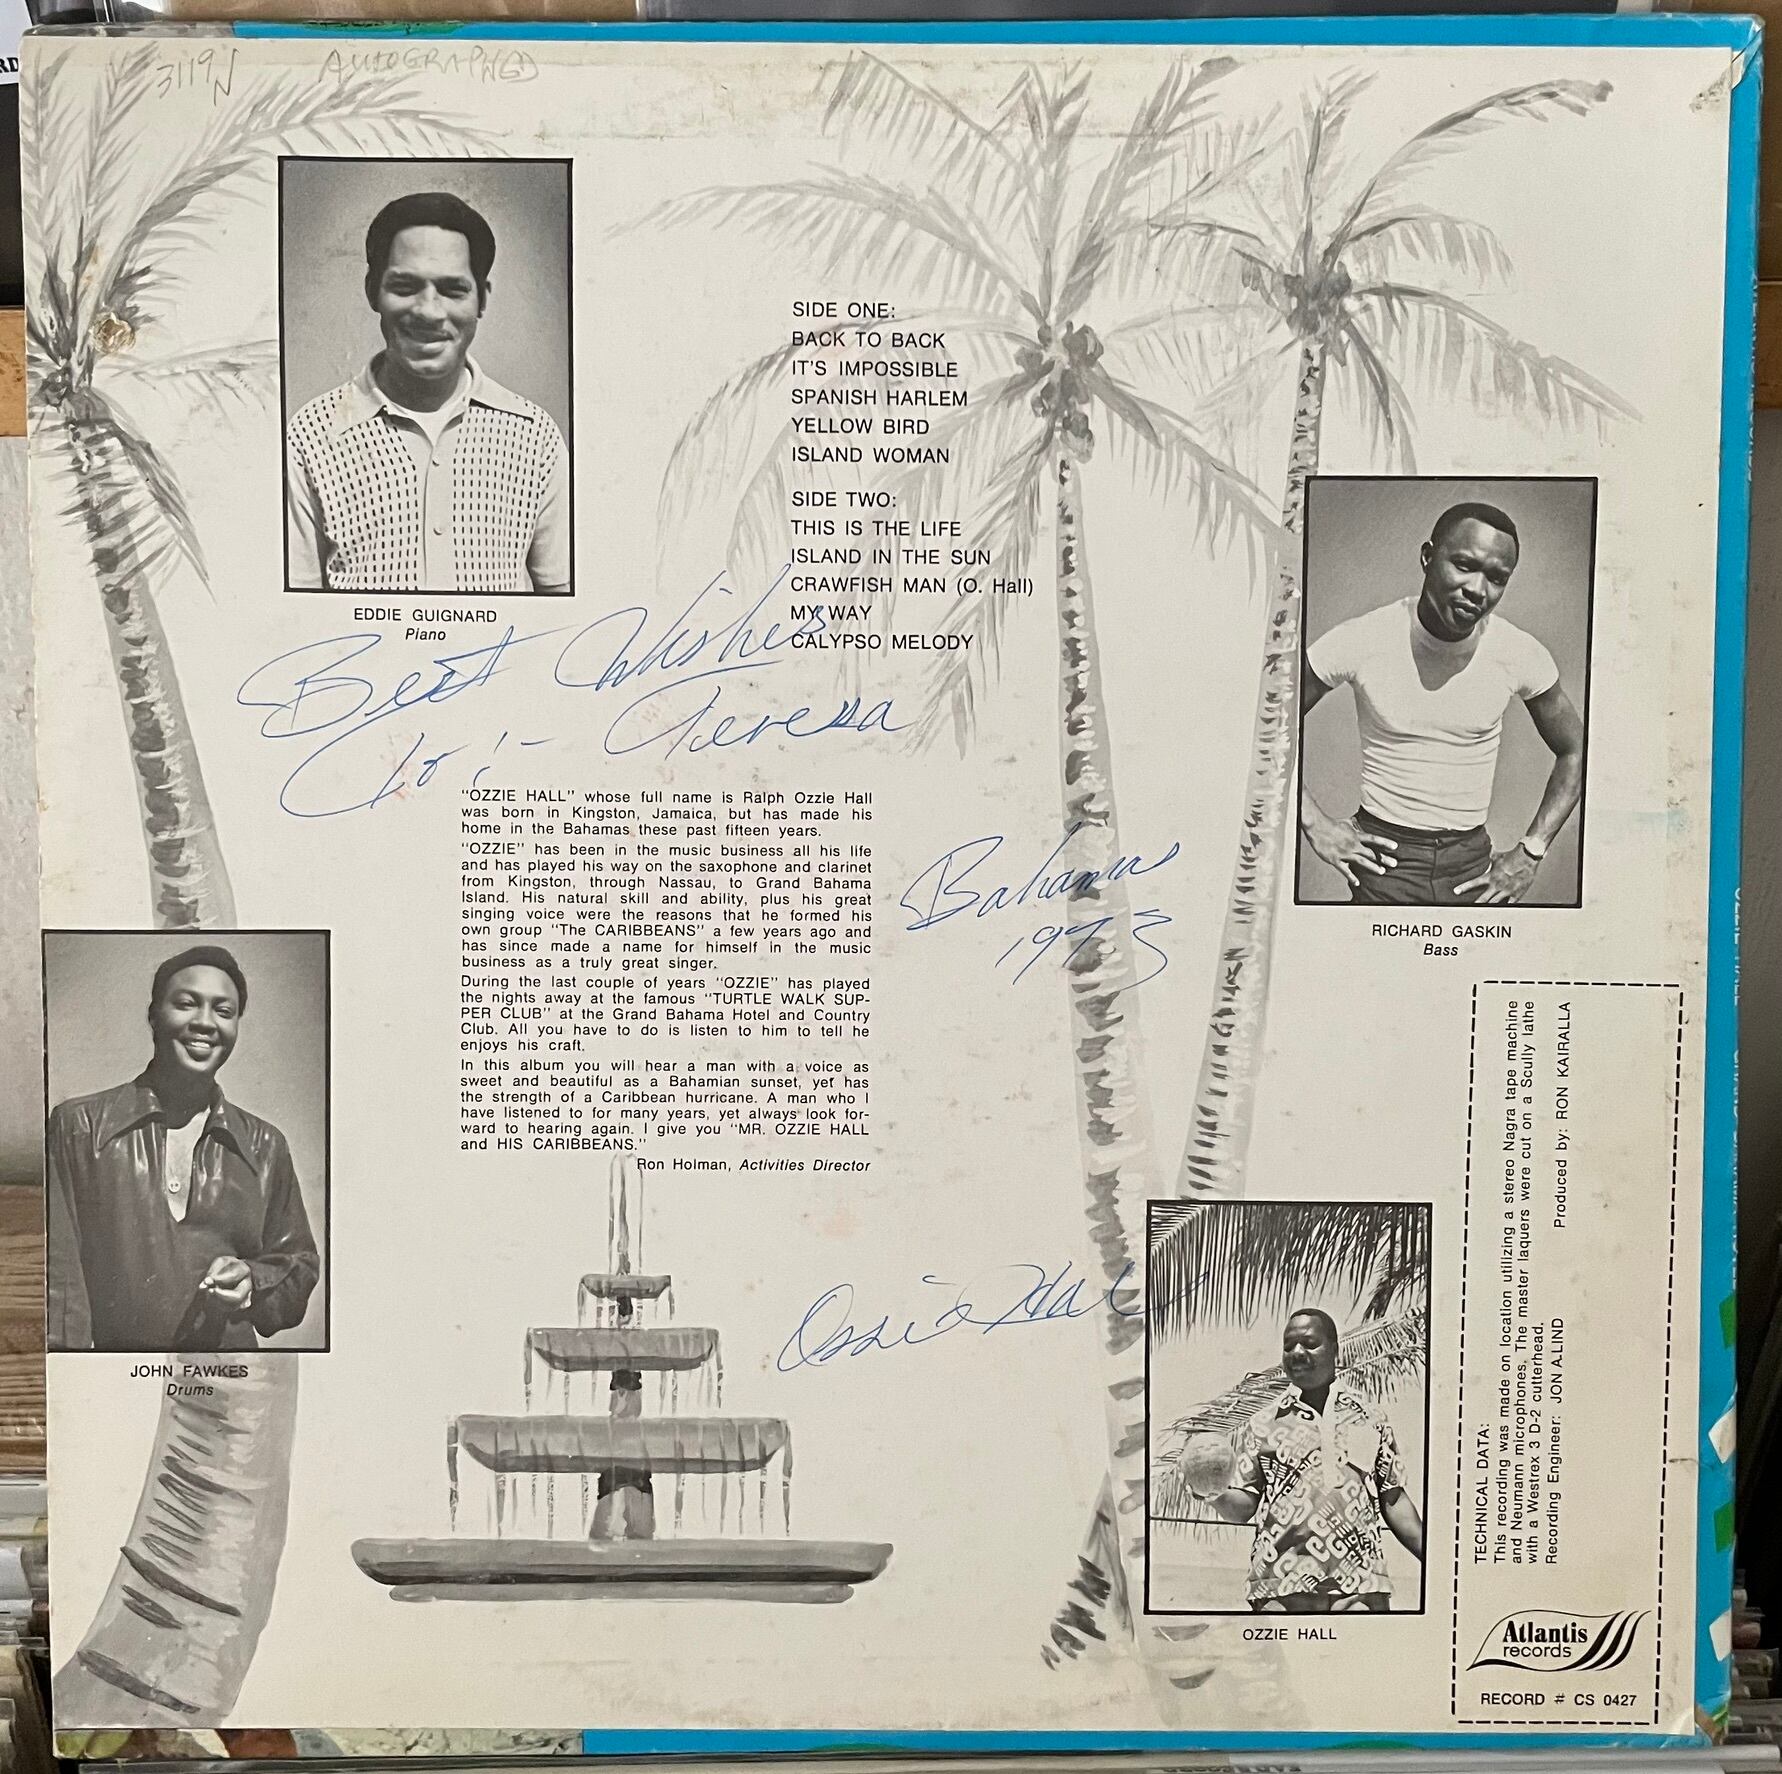 3119N
AUTOGRAPHED
EDDIE GUIGNARD
Piano
SIDE ONE:
BACK TO BACK
IT'S IMPOSSIBLE
SPANISH HARLEM
YELLOW BIRD
ISLAND WOMAN
SIDE TWO:
THIS IS THE LIFE
ISLAND IN THE SUN
CRAWFISH MAN (O. Hall)
MY WAY
CALYPSO MELODY
Best Wishes
To:- Teresa
"OZZIE HALL" whose full name is Ralph Ozzie Hall
was born in Kingston, Jamaica, but has made his
home in the Bahamas these past fifteen years.
"OZZIE" has been in the music business all his life
and has played his way on the saxophone and clarinet
from Kingston, through Nassau, to Grand Bahama
Island. His natural skill and ability, plus his great
singing voice were the reasons that he formed his
own group "The CARIBBEANS" a few years ago and
has since made a name for himself in the music
business as a truly great singer.
During the last couple of years "OZZIE" has played
the nights away at the famous "TURTLE WALK SUP-
PER CLUB" at the Grand Bahama Hotel and Country
Club. All you have to do is listen to him to tell he
enjoys his craft.
In this album you will hear a man with a voice as
sweet and beautiful as a Bahamian sunset, yet has
the strength of a Caribbean hurricane. A man who I
have listened to for many years, yet always look for-
ward to hearing again. I give you "MR. OZZIE HALL
and HIS CARIBBEANS."
Ron Holman, Activities Director
Bahamas
1973
RICHARD GASKIN
Bass
JOHN FAWKES
Drums
Ozzie Hall
OZZIE HALL
TECHNICAL DATA:
This recording was made on location utilizing a stereo Nagra tape machine
and Neumann microphones. The master laquers were cut on a Scully lathe
with a Westrex 3 D-2 cutterhead.
Recording Engineer: JON A.LIND Produced by: RON KAIRALLA
Atlantis
records
RECORD # CS 0427